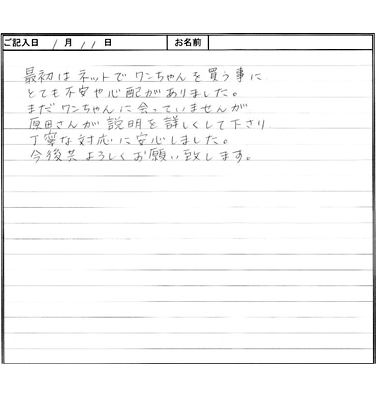 ご記入日 1月11日 お名前
最初はネットでワンちゃんを買う事に
とても不安や心配がありました。
まだワンちゃんに会っていませんが
原田さんが説明を詳しくして下さり
丁寧な対応に安心しました。
今後共よろしくお願い致します。